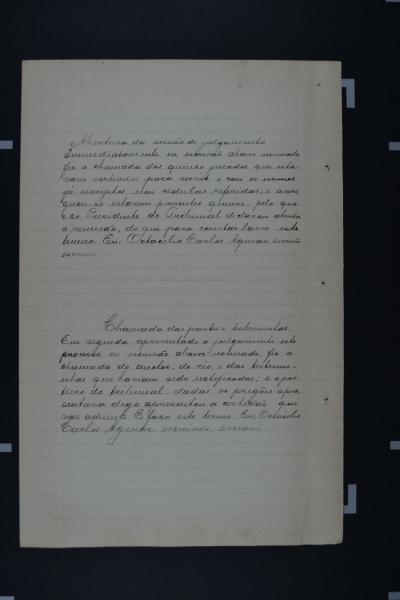 Abertura da sessão de julgamento
Immediatamente eu escrivão abaixo nomeado
fiz a chamada dos quinze jurados que esta-
vam sorteados para servir e com os nomes
já escriptos nas cedulas referidas, e a
quaes se estavam presentes quinze, pelo que
o sr Presidente do Tribunal declarou aberta
a reunião, do que para constar lavro este
termo. Eu, Octacilio Carlos Aguiar, escrivão
escrevi
Chamada das partes e testemunhas.
Em seguida, apresentado a julgamento este
processo eu escrivão abaixo nomeado, fiz a
chamada do auctor, do réo, e das testemu-
nhas que haviam sido notificadas; e o por-
teiro do tribunal, dados os pregões apre
sentava digo apresentou a certidão que
vae adiante. E faço este termo. Eu, Octacilio
Carlos Aguiar escrivão, escrevi